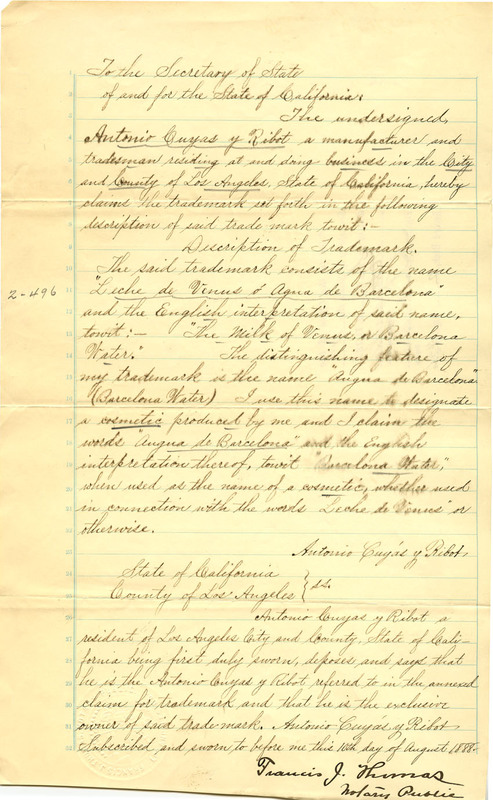 To the Secretary of State
of and for the State of California:
The undersigned,
Antonio Cuyas y Ribot a manufacturer and
tradesman residing at and doing business in the City
and County of Los Angeles, State of California, hereby
claims the trademark set forth in the following
description of said trade mark towit:-
Description of Trademark.
The said trademark consists of the name
"Leche de Venus ó Agua de Barcelona"
2-496
and the English interpretation of said name,
towit:- "The Milk of Venus, or Barcelona
Water." The distinguishing feature of
my trademark is the name "Augua de Barcelona"
(Barcelona Water) I use this name to designate
a cosmetic produced by me and I claim the
words "Augua de Barcelona" and the English
interpretation thereof, towit "Barcelona Water,"
when used as the name of a cosmetic, whether used
in connection with the words "Leche de Venus" or
otherwise.
Antonio Cuyás y Ribot
State of California
County of Los Angeles } ss.
Antonio Cuyas y Ribot a
resident of Los Angeles City and County, State of Cali-
fornia being first duly sworn, deposes and says that
he is the Antonio Cuyas y Ribot referred to in the annexed
claim for trademark and that he is the exclusive
owner of said trade mark. Antonio Cuyás y Ribot
Subscribed and sworn to before me this 16th day of August 1888-
Francis J. Thomas
Notary Public